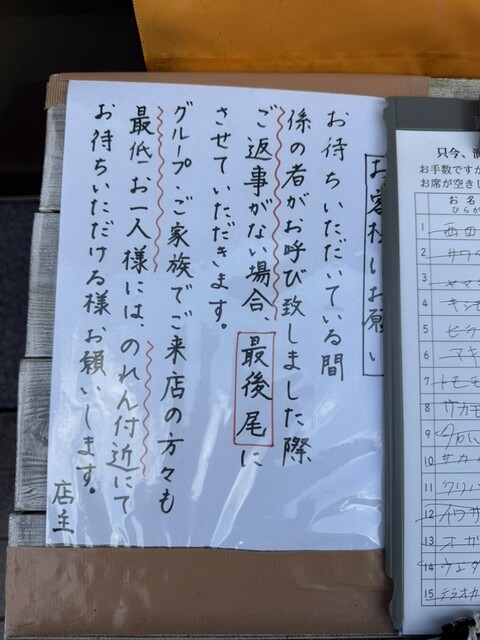 お客様にお願い
お待ちいただいている間
係の者がお呼び致しました際
ご返事がない場合 最後尾に
させていただきます。
グループ ご家族でご来店の方々も
最低お一人様には、のれん付近にて
お待ちいただける様お願いします。
店主
只今、
お手数ですが
お席が空きし
お名
ひらが
1 西田
2
3
4
5
6 マキ
7 トモモ
8 サカモ
9
10 サカイ
11 クリハ
12 イワサ
13 オガ
14 ウエダ
15 テラオカ